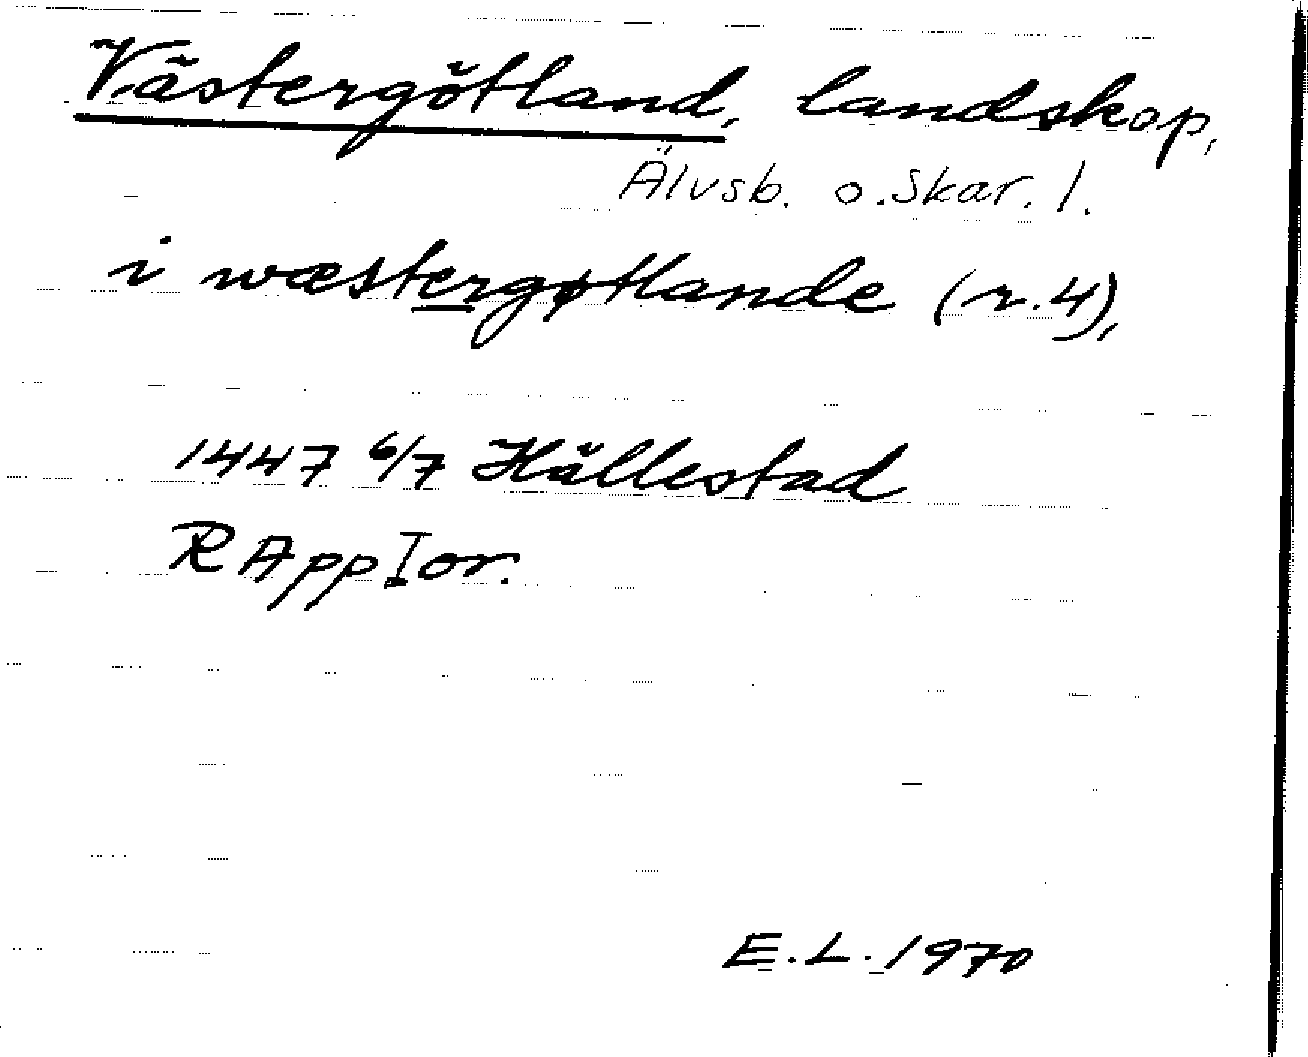 Västergötland, landskap,
Älvsb. o. Skar. l.
i wæstergøtlande (r.4),
1447 6/7 Hällestad
RAppIor.
E.L. 1970